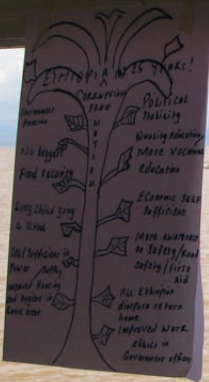 ETHIOPIA IN 25 YEARS!
CORRUPTION
FREE
NATION
Environment
No beggars
Food security
Every child going
to school
Self sufficient in
Power supply
improved Housing
and hygiene in
Rural areas
Political
Stability
Quality education,
More vocational
education
Economic Self
Sufficient
More awareness
on Safety/Road
safety/first
aid
All Ethiopian
diaspora return
home
Improved work
ethics in
Government offices